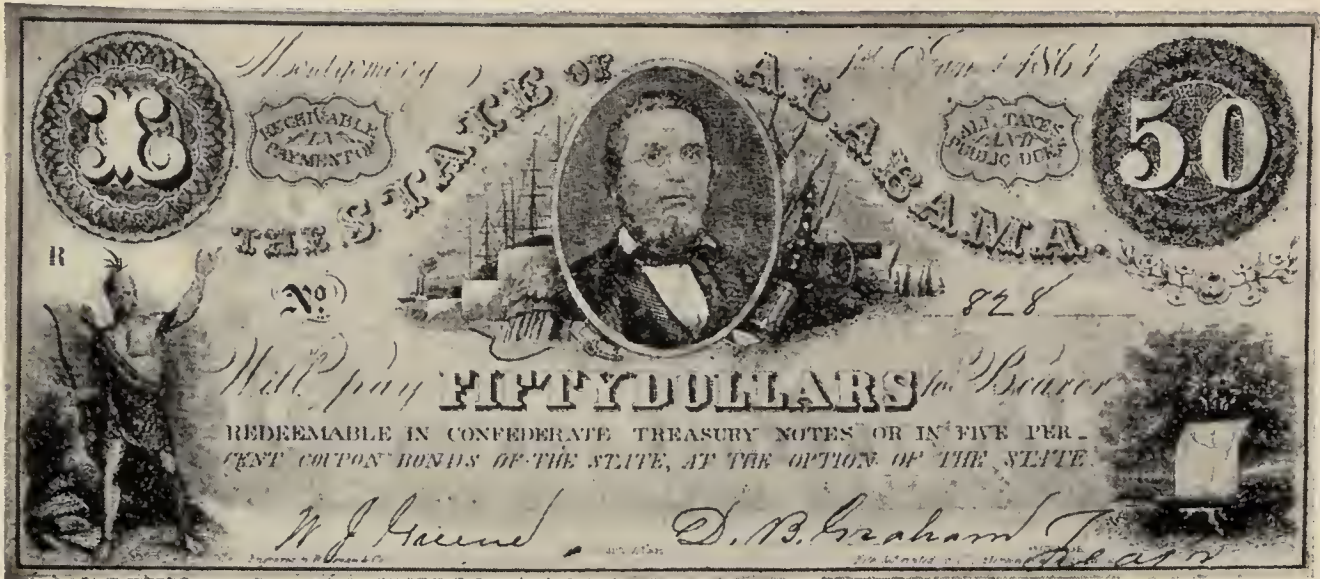 Montgomery, 1st Jany. 1864
RECEIVABLE
IN
PAYMENT OF
ALL TAXES
AND
PUBLIC DUES
50
THE STATE OF ALABAMA.
R
No. 828
Will pay FIFTY DOLLARS to Bearer
REDEEMABLE IN CONFEDERATE TREASURY NOTES OR IN FIVE PER-
CENT COUPON BONDS OF THE STATE, AT THE OPTION OF THE STATE
W J Greene D. B. Graham Treasr